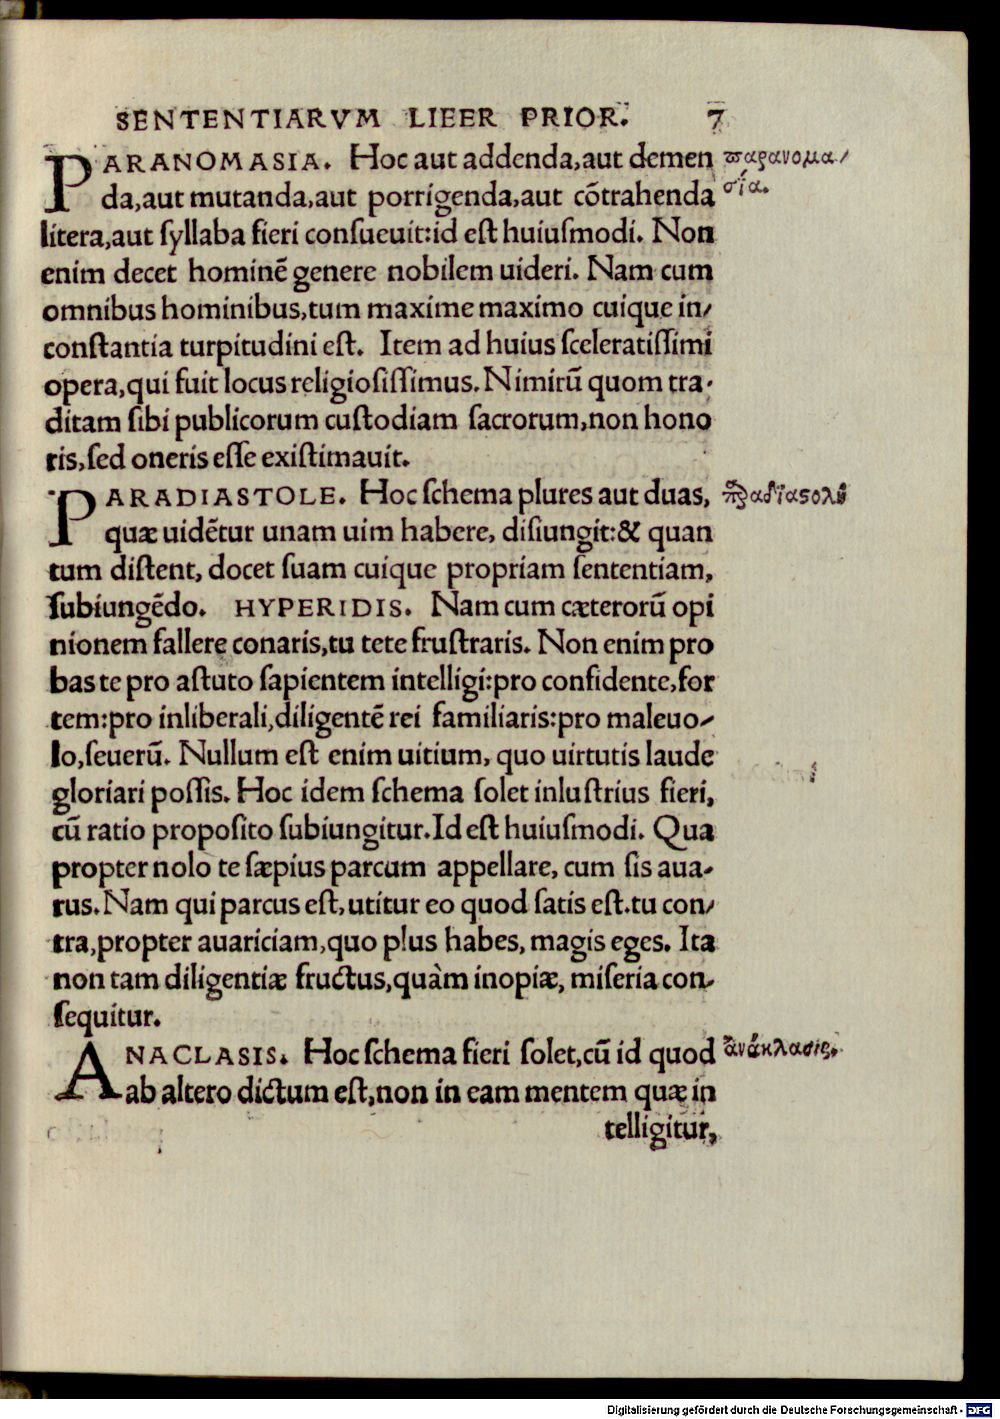 SENTENTIARVM LIEER PRIOR. 7
PARANOMASIA. Hoc aut addenda,aut demen
da,aut mutanda,aut porrigenda,aut cõtrahenda
litera,aut ſyllaba fieri conſueuit:id eſt huiuſmodi. Non
enim decet hominē genere nobilem uideri. Nam cum
omnibus hominibus,tum maxime maximo cuique in/
conſtantia turpitudini eſt. Item ad huius ſceleratiſſimi
opera,qui fuit locus religioſiſſimus. Nimirū quom tra-
ditam ſibi publicorum cuſtodiam ſacrorum,non hono
ris,ſed oneris eſſe exiſtimauit.
παρανομα/
σία.
PARADIASTOLE. Hoc ſchema plures aut duas,
quæ uidētur unam uim habere, diſiungit:& quan
tum diſtent, docet ſuam cuique propriam ſententiam,
ſubiungēdo. HYPERIDIS. Nam cum cæterorū opi
nionem fallere conaris,tu tete fruſtraris. Non enim pro
bas te pro aſtuto ſapientem intelligi:pro confidente,for
tem:pro inliberali,diligentē rei familiaris:pro maleuo/
lo,ſeuerū. Nullum eſt enim uitium, quo uirtutis laude
gloriari poſſis. Hoc idem ſchema ſolet inluſtrius fieri,
cū ratio propoſito ſubiungitur.Id eſt huiuſmodi. Qua
propter nolo te ſæpius parcum appellare, cum ſis aua-
rus. Nam qui parcus eſt, utitur eo quod ſatis eſt.tu con/
tra,propter auariciam,quo plus habes, magis eges. Ita
non tam diligentiæ fructus,quàm inopiæ, miſeria con-
ſequitur.
ANACLASIS. Hoc ſchema fieri ſolet,cū id quod
ab altero dictum eſt,non in eam mentem quæ in
telligitur,
ἀνάκλασις.
Digitalisierung gefördert durch die Deutsche Forschungsgemeinschaft - DFG